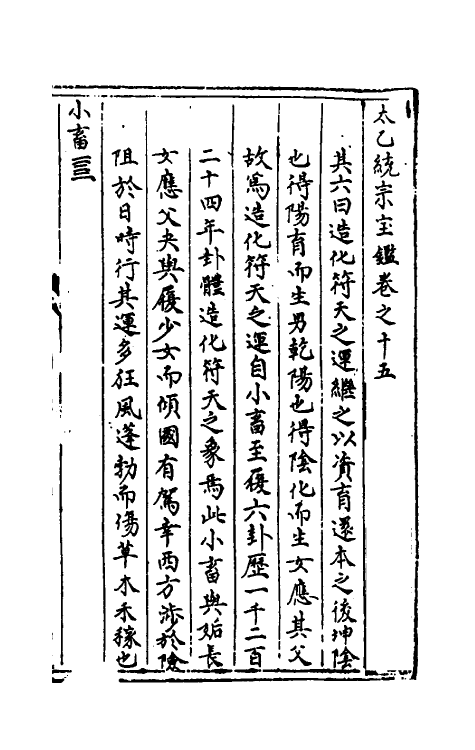 太乙統宗宝鑑卷之十五
其六曰造化符天之運繼之以資育還本之後坤陰
也得陽育而生男乾陽也得陰化而生女應其父
故爲造化符天之運自小畜至履六卦歷一千二百
二十四年卦體造化符天之象焉此小畜與姤長
女應父夬與履少女而傾國有駕幸西方涉於險
阻於日時行其運多狂風蓬勃而傷草木禾稼也
小畜☴☰